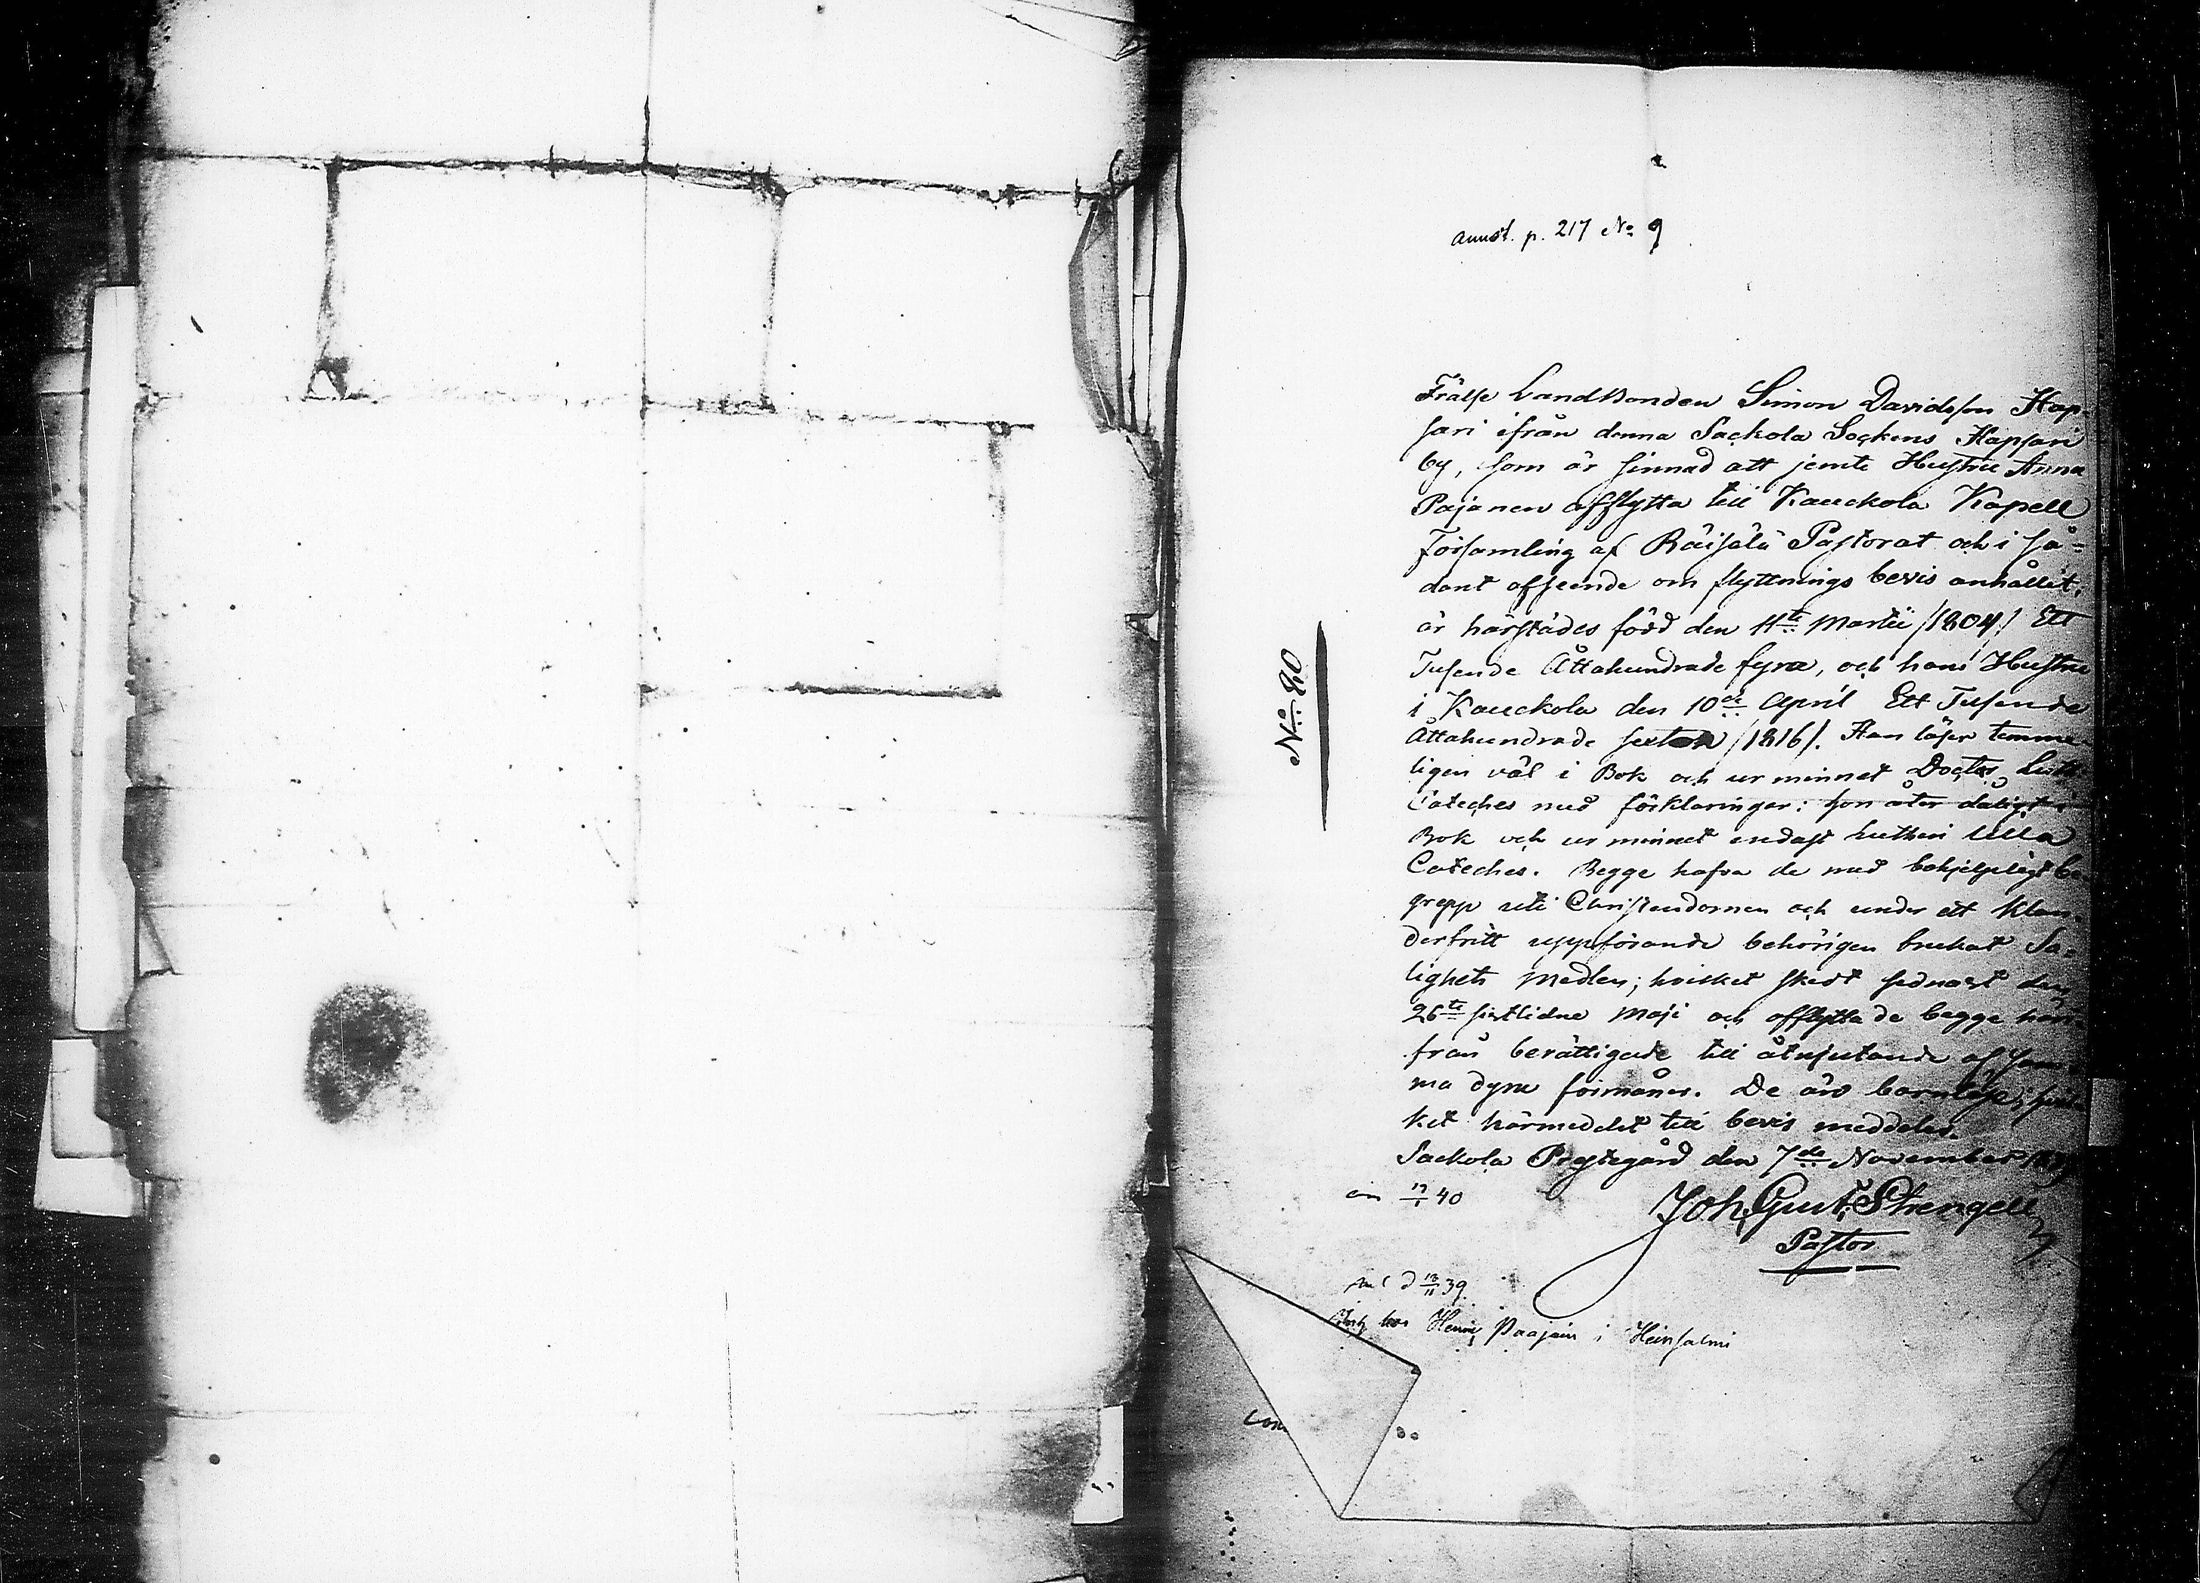 annot. p. 217 No 9
No 80
Frälse Landbonden Simon Davidsson Hap-
sari ifrån denna Sackola Sockens Hapsari
by, som är sinnad att jemte Hustru Anna
Pajanen afflytta till Kauckola Kapell
Församling af Räisälä Pastorat och i så-
dant afseende om flyttnings bevis anhållit,
är härstädes född den 11te Martii /1804/ Ett
Tusende Åttahundrade fyra, och hans Hustru
i Kauckola den 10de April Ett Tusende
Åttahundrade sexton /1816/. Han läser temme-
ligen väl i Bok och ur minnet Doctor Luth
Cateches med förklaringar: hon åter dåligt i
Bok och ur minnet endast Lutheri Lilla
Cateches. Begge hafva de med behjelpligt be-
grepp uti Christendomen och under ett klan-
derfritt uppförande behörigen brukat Sa-
lighets Medlen; hvilket skedt sednast den
26te sistlidne Maji och afflytta de begge här-
ifrån berättigade till åtnjutande af sam-
ma dyra förmåner. De äro barnlöse;
ket härmedelst till bevis meddelas.
Sackola Prestegård den 7de November 1839
17/1 40
Joh. Gust. Strengell
Pastor
d 13/11 39
hos Henric Paajain i Heinsalmi